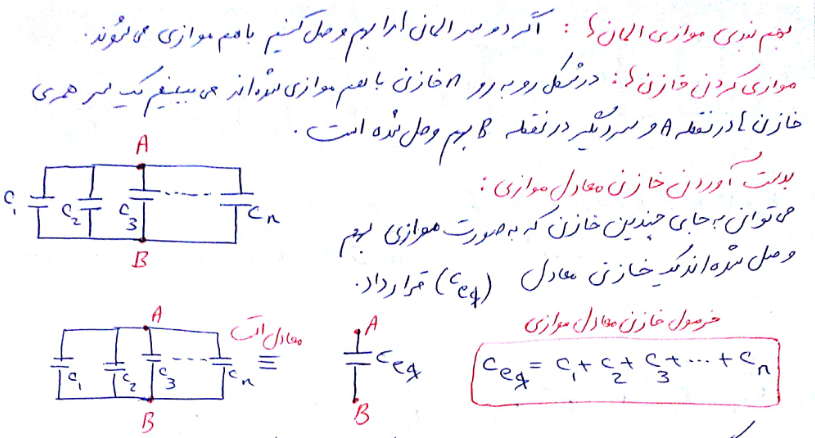 بهم بندی موازی المان ها : اگر دو سر المان را بهم وصل کنیم باهم موازی می شوند.
موازی کردن خازن ها : در شکل رو به رو n خازن با هم موازی شده اند می بینیم یک سر همه ی
خازن ها در نقطه A و سر دیگر در نقطه B بهم وصل شده است .
بدست آوردن خازن معادل موازی :
می توان به جای چندین خازن که به صورت موازی بهم
وصل شده اند یک خازن معادل (Ceq) قرار داد.
A
C1 C2 C3 ...... Cn
B
فرمول خازن معادل موازی
Ceq = C1 + C2 + C3 + ... + Cn
A
C1 C2 C3 ...... Cn
B
معادل است
≡
A
Ceq
B